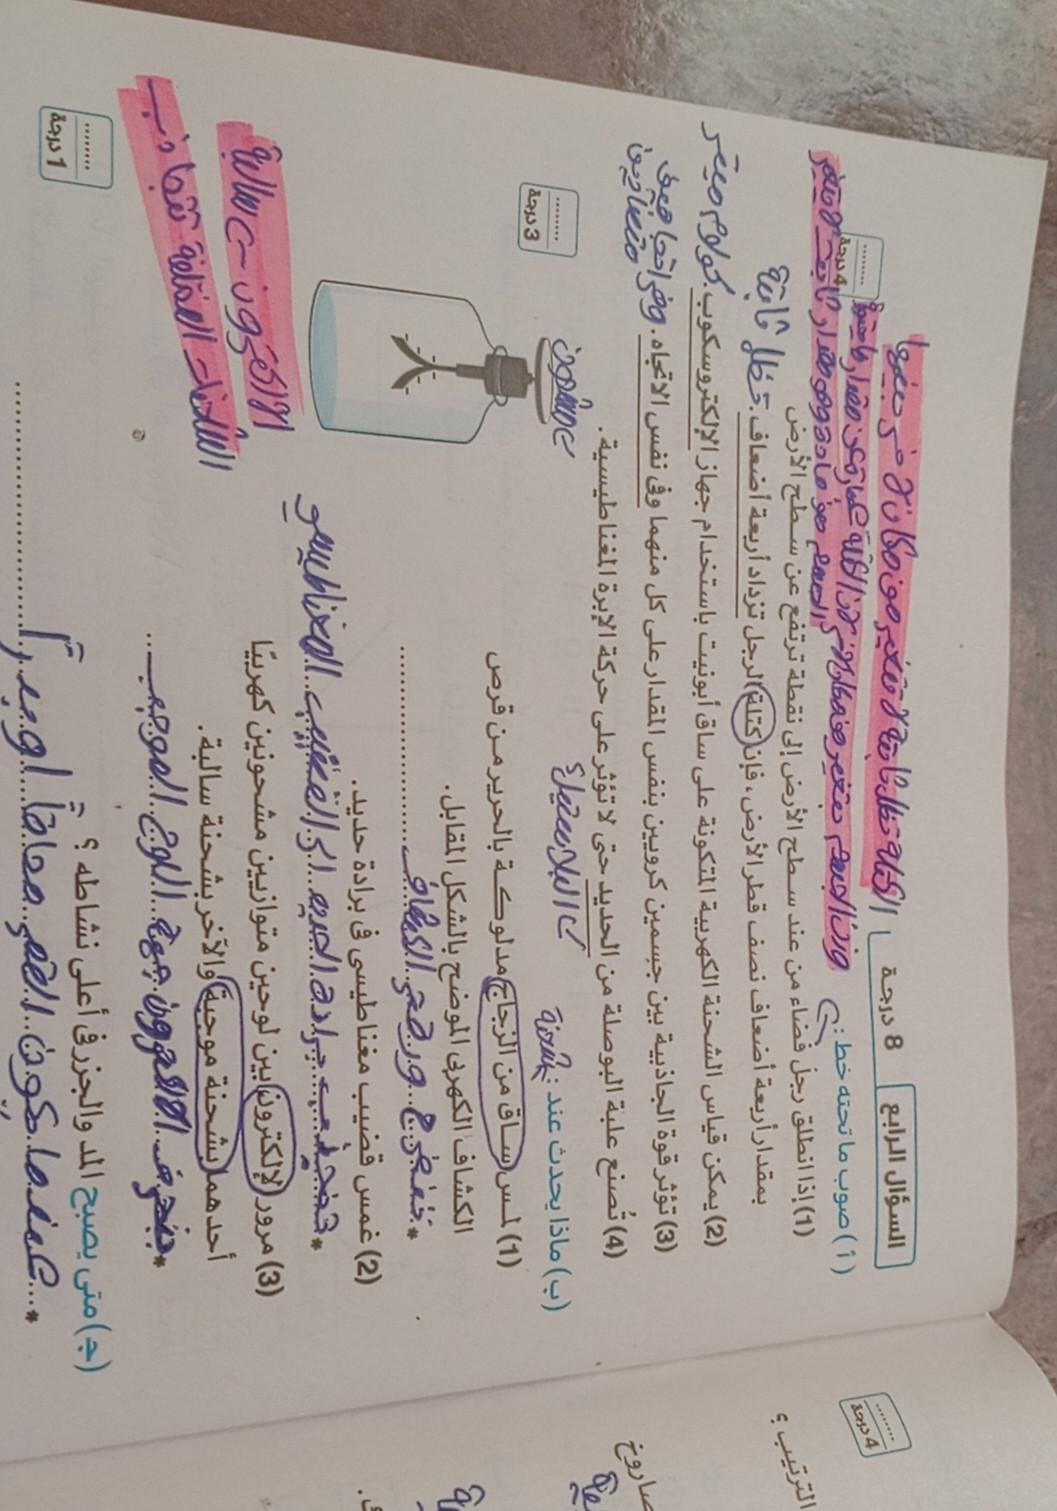 السؤال الرابع
8 درجة
الكتلة تظل ثابتة لا تتغير مهما كان
(أ) صوب ما تحته خط :
........
4 درجة
(1) إذا انطلق رجل فضاء من عند سطح الأرض إلى نقطة ترتفع عن سطح الأرض
بمقدار أربعة أضعاف نصف قطر الأرض، فإن كتلة الرجل تزداد أربعة أضعاف. تظل ثابتة
(2) يمكن قياس الشحنة الكهربية المتكونة على ساق أبونيت باستخدام جهاز الإلكتروسكوب. كولوم ميتر
(3) تؤثر قوة الجاذبية بين جسمين كرويين بنفس المقدار على كل منهما وفى نفس الاتجاه. وفى اتجاهين متضادين
(4) تُصنع علبة البوصلة من الحديد حتى لا تؤثر على حركة الإبرة المغناطيسية.
البلاستيك
(ب) ماذا يحدث عند :
........
3 درجة
(1) لمس ساق من الزجاج مدلوكة بالحرير من قرص
الكشاف الكهربى الموضح بالشكل المقابل.
* تنفرج ورقتى الكشاف
(2) غمس قضيب مغناطيسى فى برادة حديد.
* تنجذب برادة الحديد الى القضيب المغناطيسي
(3) مرور إلكترون بين لوحين متوازيين مشحونين كهربيًا
أحدهما بشحنة موجبة والآخر بشحنة سالبة.
* ينحرف الالكترون جهة اللوح الموجب
الالكترون سالبة
الشحنات المختلفة تتجاذب
(ج) متى يصبح المد والجزر فى أعلى نشاطه ؟
........
1 درجة
* عندما يكون القمر محاقًا او بدرًا
........
4 درجة
الترتيب ؟
صاروخ